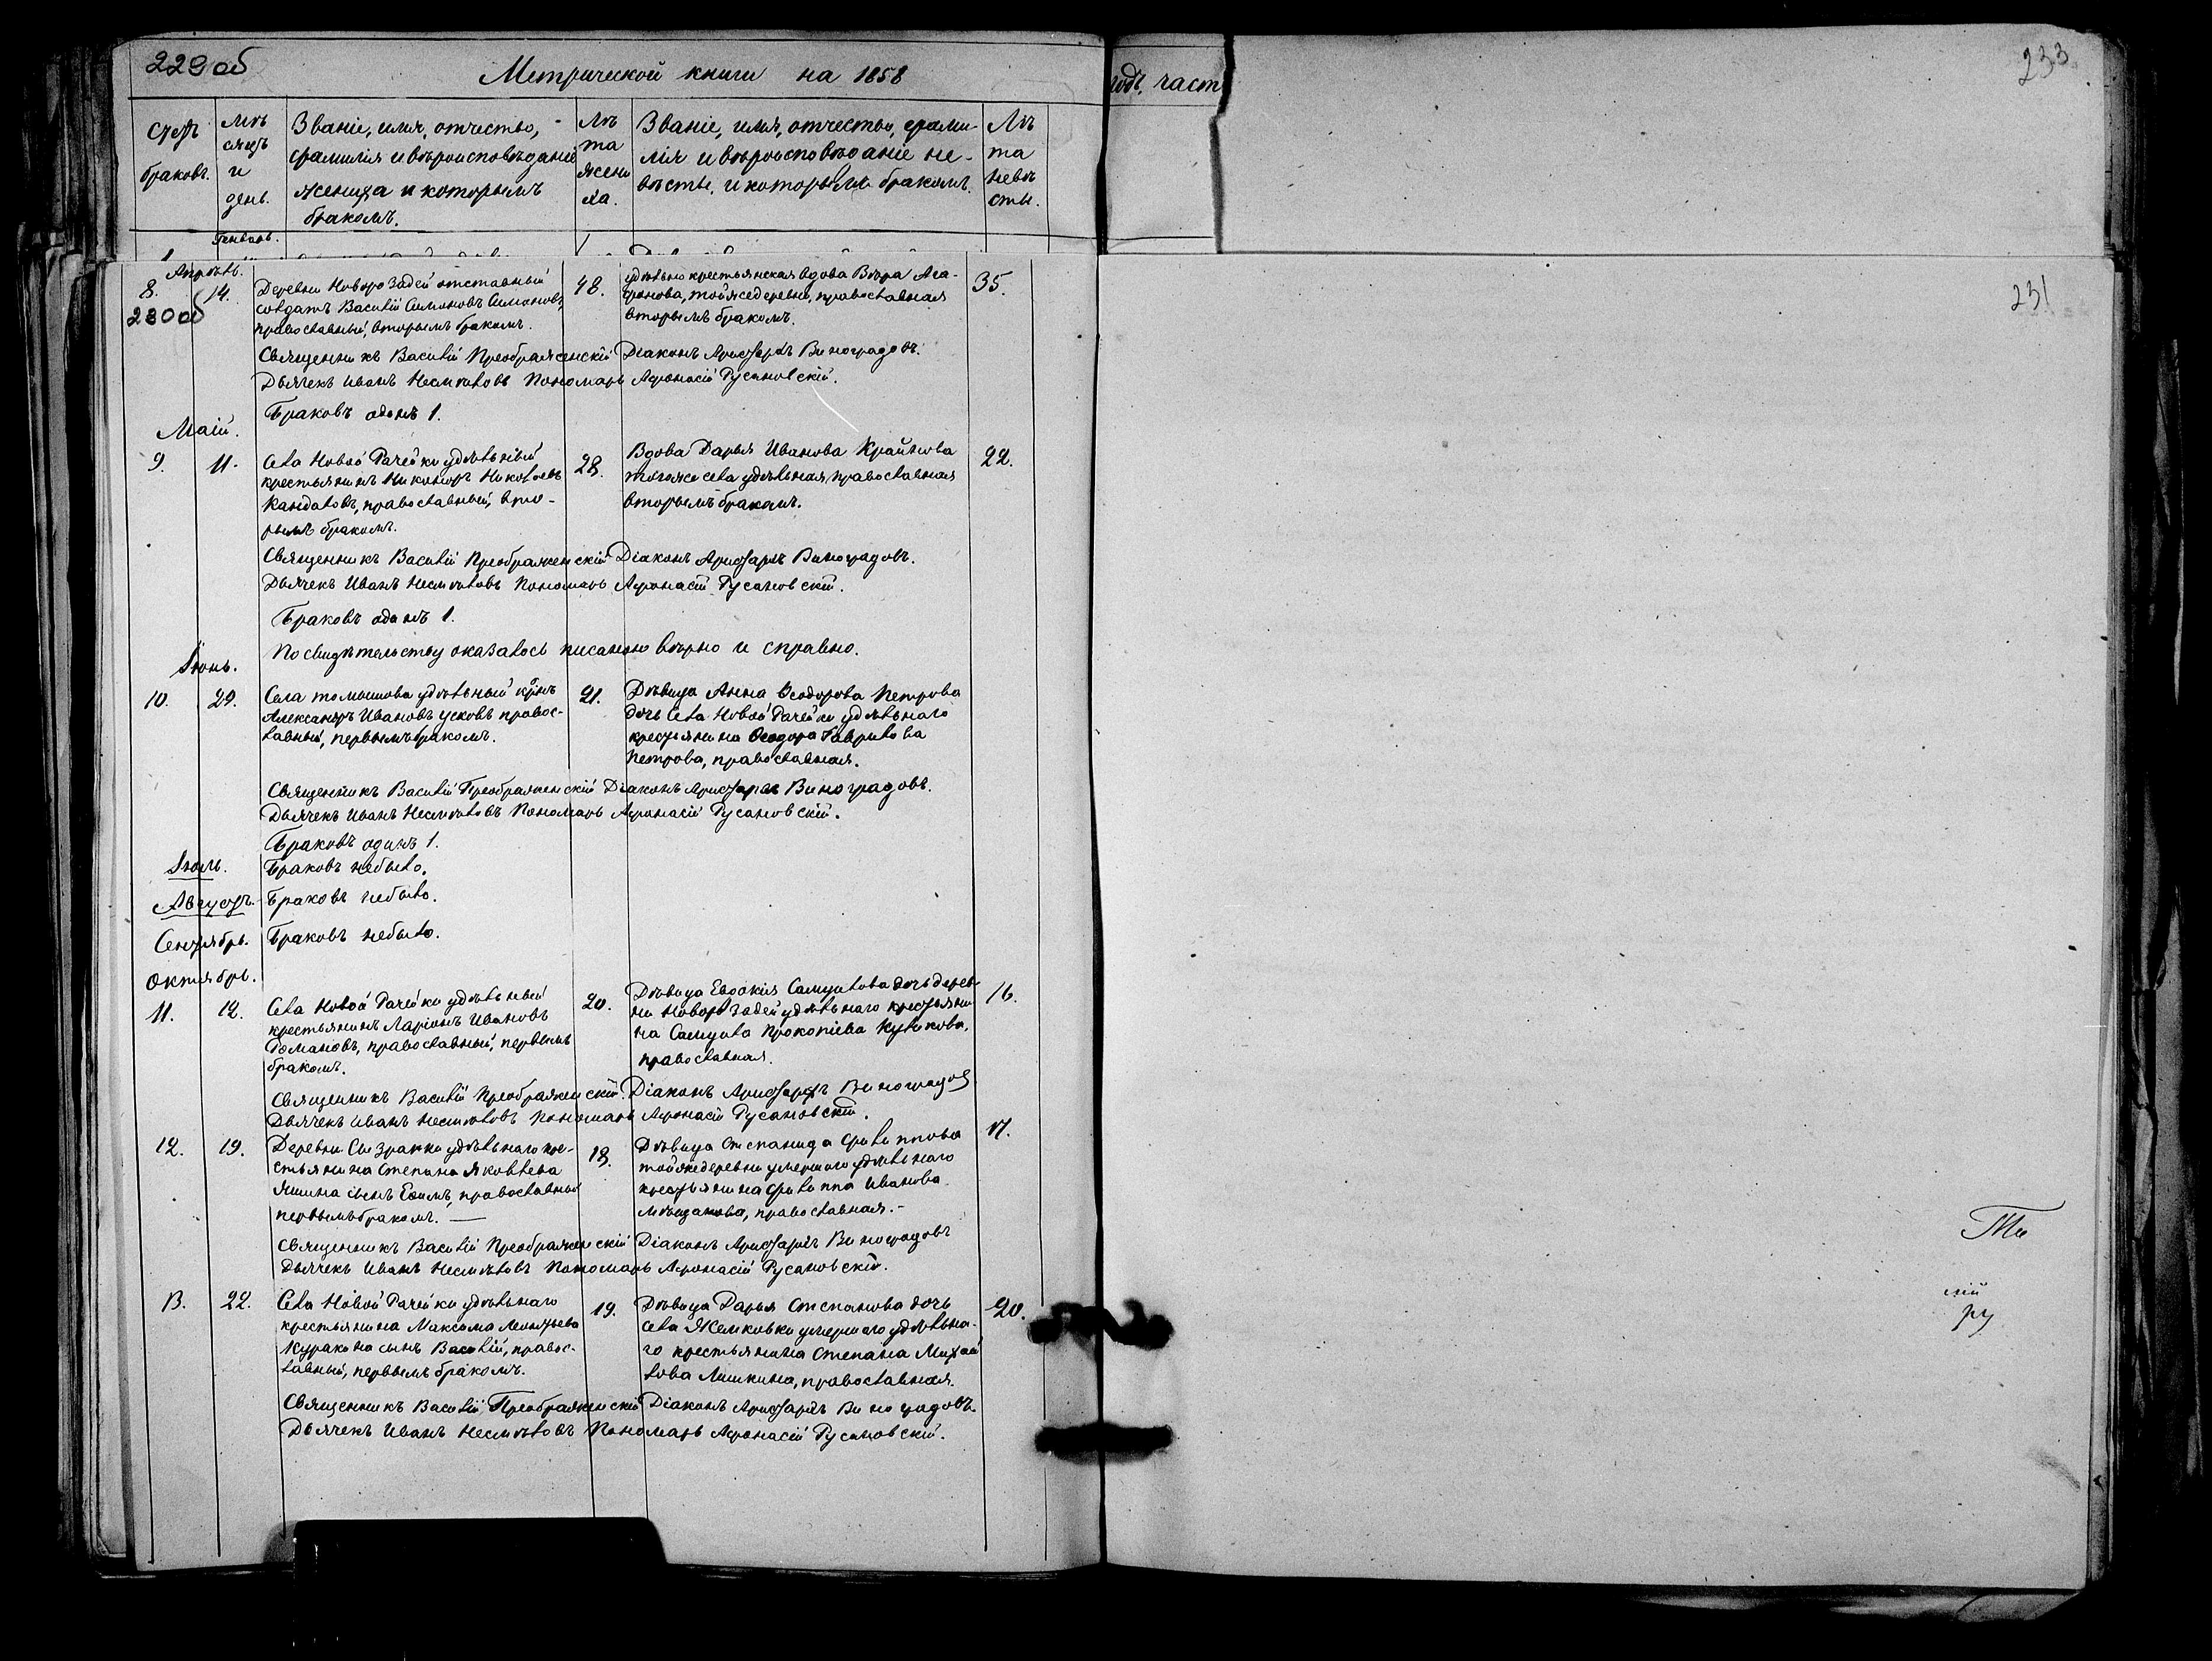 229 об
Метрической книги на 1858
годъ, част
233
Счетъ браковъ.
Мѣсяцъ и день.
Званіе, имя, отчество,
фамилія и вѣроисповѣданіе
жениха и которымъ
бракомъ.
Лѣта жениха.
Званіе, имя, отчество, фами-
лія и вѣроисповѣданіе не-
вѣсты, и которымъ бракомъ.
Лѣта невѣсты.
Генварь.
Апрѣль.
8.
14.
230 об
Деревни Новорозадей отставный
солдатъ Василій Симоновъ Симоновъ,
православный, вторымъ бракомъ.
48.
удѣльно крестьянская вдова Вѣра Ага-
фонова, тойже деревни, православная
вторымъ бракомъ.
35.
231
Священникъ Василій Преображенскій Діаконъ Аристархъ Виноградовъ.
Дьячекъ Иванъ Несмѣловъ Пономарь Афонасій Русановскій.
Браковъ одинъ 1.
Маій.
9.
11.
Села Новой Рачейки удѣльный
крестьянинъ Никоноръ Николаевъ
Кандаловъ, православный, вто-
рымъ бракомъ.
28.
Вдова Дарья Иванова Крайнова
тогоже села удѣльная, православная
вторымъ бракомъ.
22.
Священникъ Василій Преображенскій Діаконъ Аристархъ Виноградовъ.
Дьячекъ Иванъ Несмѣловъ Пономарь Афонасій Русановскій.
Браковъ одинъ 1.
По свидѣтельству оказалось писанно вѣрно и справно.
Іюнь.
10.
29.
Села томышова удѣльный кр҃нъ
Александръ Ивановъ Усковъ правос-
лавный, первымъ бракомъ.
21.
Дѣвица Анна Ѳеодорова Петрова
дочь Села Новой Рачейки удѣльнаго
крестьянина Ѳеодора Гаврилова
Петрова, православная.
Священникъ Василій Преображенскій Діаконъ Аристархъ Виноградовъ.
Дьячекъ Иванъ Несмѣловъ Пономарь Афонасій Русановскій.
Браковъ одинъ 1.
Іюль. Браковъ небыло.
Августъ. Браковъ небыло.
Сентябрь. Браковъ небыло.
Октябрь.
11.
12.
Села Новой Рачейки удѣльный
крестьянинъ Ларіонъ Ивановъ
Романовъ, православный, первымъ
бракомъ.
20.
Дѣвица Евдокія Самуилова дочь дерев-
ни Новорозадей удѣльнаго крестьяни-
на Самуила Прокопіева Куликова,
православная.
16.
Священникъ Василій Преображенскій. Діаконъ Аристархъ Виноградов
Дьячекъ Иванъ Несмѣловъ Пономарь Афонасій Русановскій.
12.
19.
Деревни Сызранки удѣльнаго кре-
стьянина Степана Яковлева
Яшина сынъ Ефимъ, православный
первымъ бракомъ. —
18.
Дѣвица Степанида Филиппова
тойже деревни умершаго удѣльнаго
крестьянина Филиппа Иванова
православная. -
17.
Священникъ Василій Преображенскій Діаконъ Аристархъ Виноградовъ
Дьячекъ Иванъ Несмѣловъ Пономарь Афонасій Русановскій.
13.
22.
Села Новой Рачейки удѣльнаго
крестьянина Максима Леонтьева
Куракона сынъ Василій, правос-
лавный, первымъ бракомъ.
19.
Дѣвица Дарья Степанова дочь
села Жемковки умершаго удѣльна-
го крестьянина Степана Михай
лова Лишкина, православная.
20.
Священникъ Василій Преображенскій Діаконъ Аристархъ Виноградовъ.
Дьячекъ Иванъ Несмѣловъ Пономарь Афонасій Русановскій.